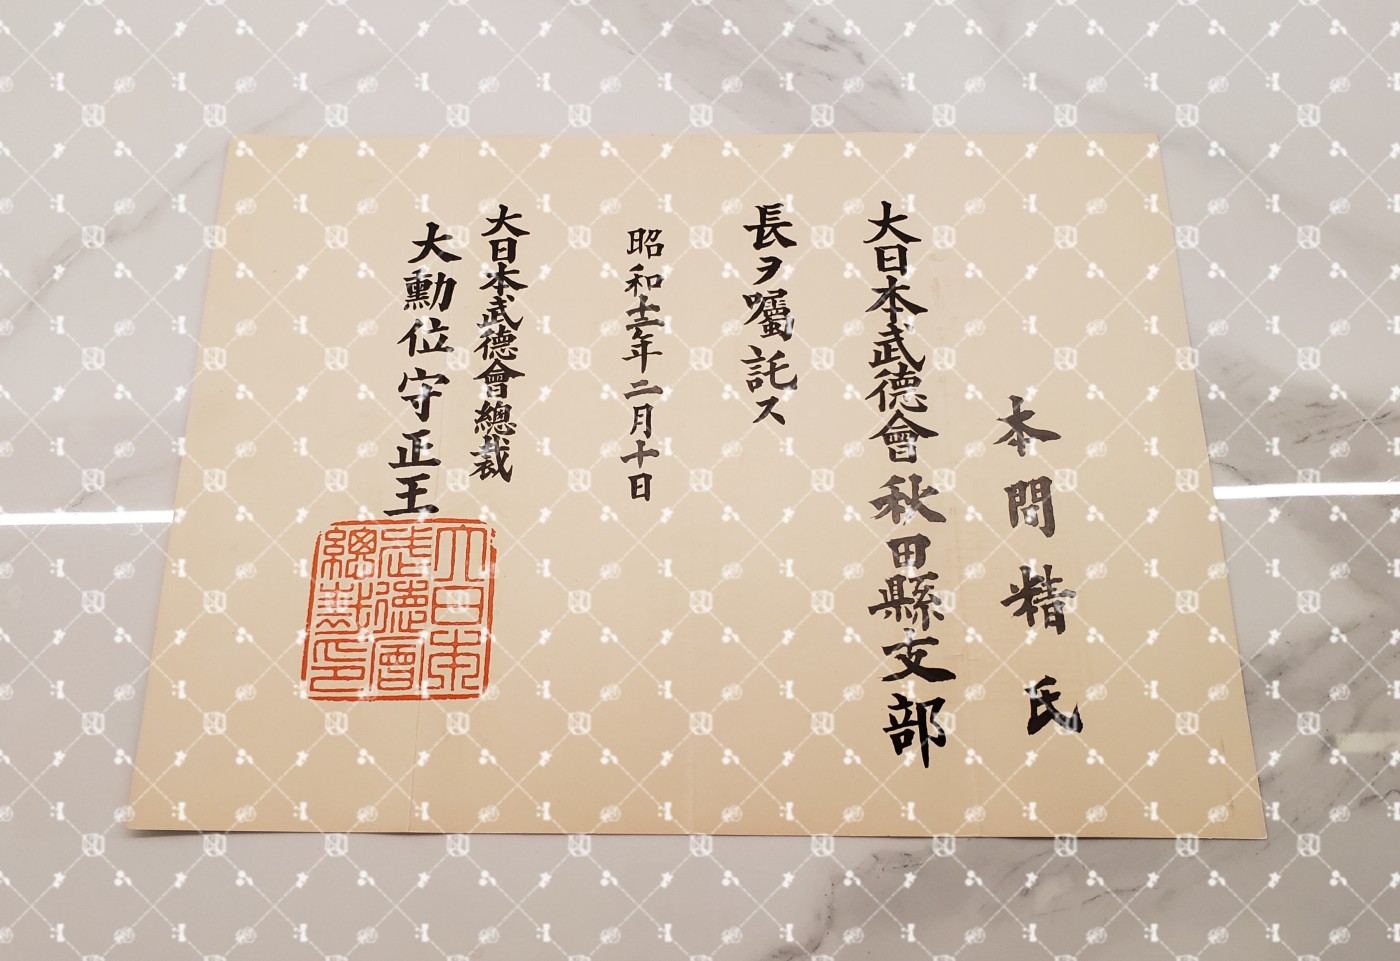 本間精氏
大日本武德會秋田縣支部
長ヲ囑託ス
昭和十二年二月十日
大日本武德會總裁
大勳位守正王
大日本
武德會
總裁印